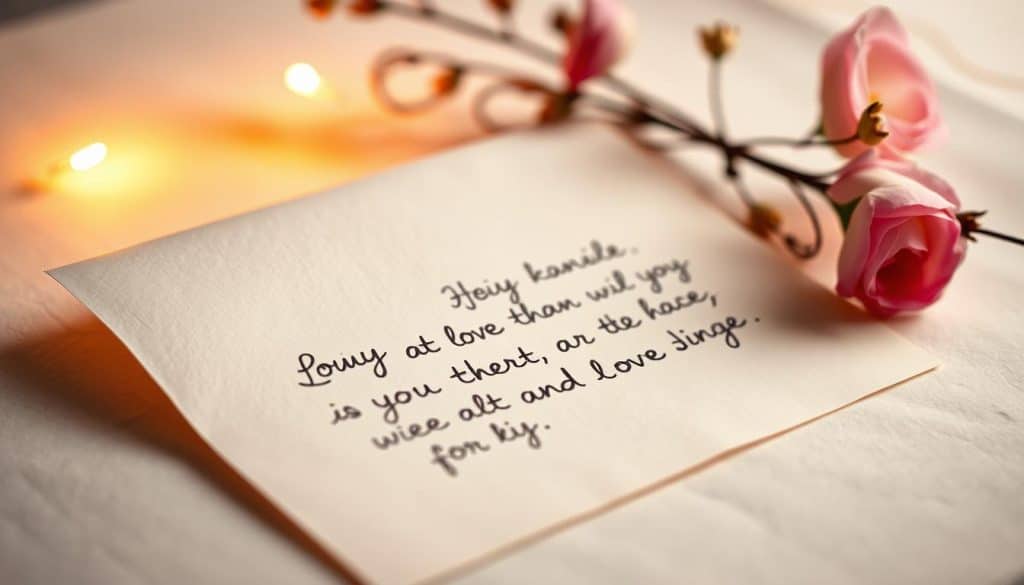 Hoiy kanile.
Louuy at love than wil yoay
is you thert, ar tte hace,
wiee alt and love Jinge.
for kiy.